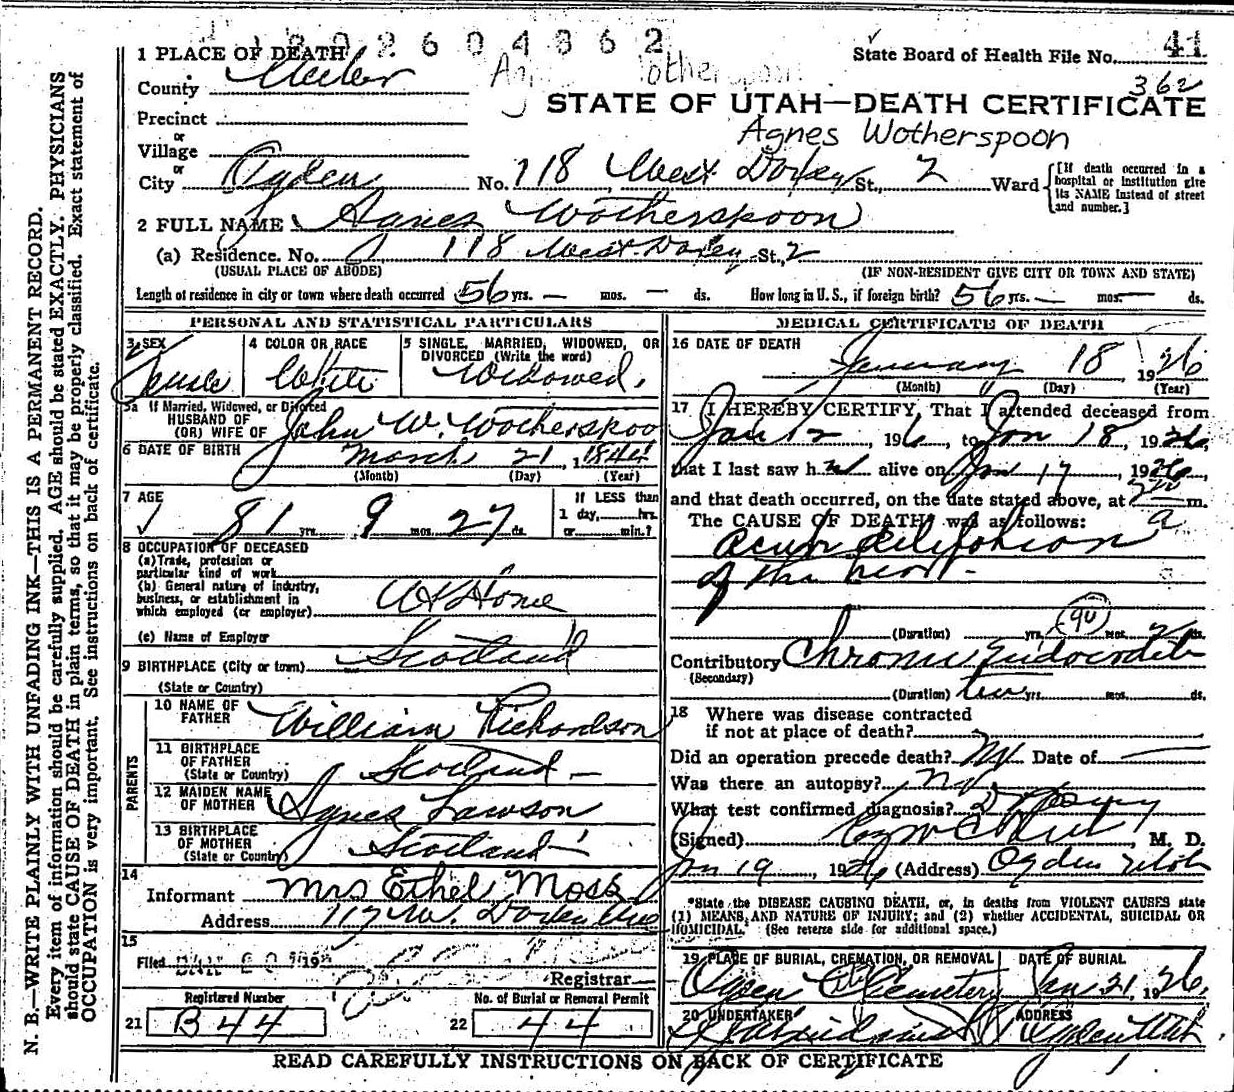 192604362
1 PLACE OF DEATH
State Board of Health File No. 41
County Weber
362
Precinct
STATE OF UTAH—DEATH CERTIFICATE
or
Agnes Wotherspoon
Village
or
City Ogden No. 118 West Doxey St., 2 Ward
[If death occurred in a hospital or institution give its NAME instead of street and number.]
2 FULL NAME Agnes Wotherspoon
(a) Residence. No. 118 West Doxey St., 2
(USUAL PLACE OF ABODE) (IF NON-RESIDENT GIVE CITY OR TOWN AND STATE)
Length of residence in city or town where death occurred 56 yrs. — mos. — ds. How long in U. S., if foreign birth? 56 yrs. — mos. — ds.
PERSONAL AND STATISTICAL PARTICULARS
3 SEX 4 COLOR OR RACE 5 SINGLE, MARRIED, WIDOWED, OR
DIVORCED (Write the word)
Female White Widowed.
5a If Married, Widowed, or Divorced
HUSBAND OF
(OR) WIFE OF John W. Wotherspoon
6 DATE OF BIRTH March 21, 1844
(Month) (Day) (Year)
7 AGE If LESS than
1 day, hrs.
81 yrs. 9 mos. 27 ds. or min.?
8 OCCUPATION OF DECEASED
(a) Trade, profession or
particular kind of work
(b) General nature of industry,
business, or establishment in
which employed (or employer) At Home
(c) Name of Employer
9 BIRTHPLACE (City or town) Scotland
(State or Country)
PARENTS
10 NAME OF
FATHER William Richardson
11 BIRTHPLACE
OF FATHER
(State or Country) Scotland —
12 MAIDEN NAME
OF MOTHER Agnes Lawson
13 BIRTHPLACE
OF MOTHER
(State or Country) Scotland
14
Informant Mrs Ethel Moss
Address 117 W. Doxey
15
Filed JAN 20 192
Registrar
Registered Number No. of Burial or Removal Permit
21 B44 22 44
MEDICAL CERTIFICATE OF DEATH
16 DATE OF DEATH
January 18 1926
(Month) (Day) (Year)
17 I HEREBY CERTIFY, That I attended deceased from
Jan 12, 1926, to Jan 18, 1926,
that I last saw her alive on Jan 17 1926,
and that death occurred, on the date stated above, at 2 a m.
The CAUSE OF DEATH was as follows:
Acute dilitation
of the heart -
90
(Duration) yrs. mos. ds.
Contributory Chronic Endocarditis
(Secondary)
(Duration) ten yrs. mos. ds.
18 Where was disease contracted
if not at place of death?
Did an operation precede death? No Date of —
Was there an autopsy? No
What test confirmed diagnosis?
(Signed) M. D.
Jan 19, 1926 (Address) Ogden Utah
*State the DISEASE CAUSING DEATH, or, in deaths from VIOLENT CAUSES state
(1) MEANS AND NATURE OF INJURY; and (2) whether ACCIDENTAL, SUICIDAL OR
HOMICIDAL. (See reverse side for additional space.)
19 PLACE OF BURIAL, CREMATION, OR REMOVAL DATE OF BURIAL
Ogden City Cemetery Jan 21, 1926.
20 UNDERTAKER ADDRESS
Ogden Utah
READ CAREFULLY INSTRUCTIONS ON BACK OF CERTIFICATE
N. B.—WRITE PLAINLY WITH UNFADING INK—THIS IS A PERMANENT RECORD.
Every item of information should be carefully supplied. AGE should be stated EXACTLY. PHYSICIANS
should state CAUSE OF DEATH in plain terms, so that it may be properly classified. Exact statement of
OCCUPATION is very important. See instructions on back of certificate.